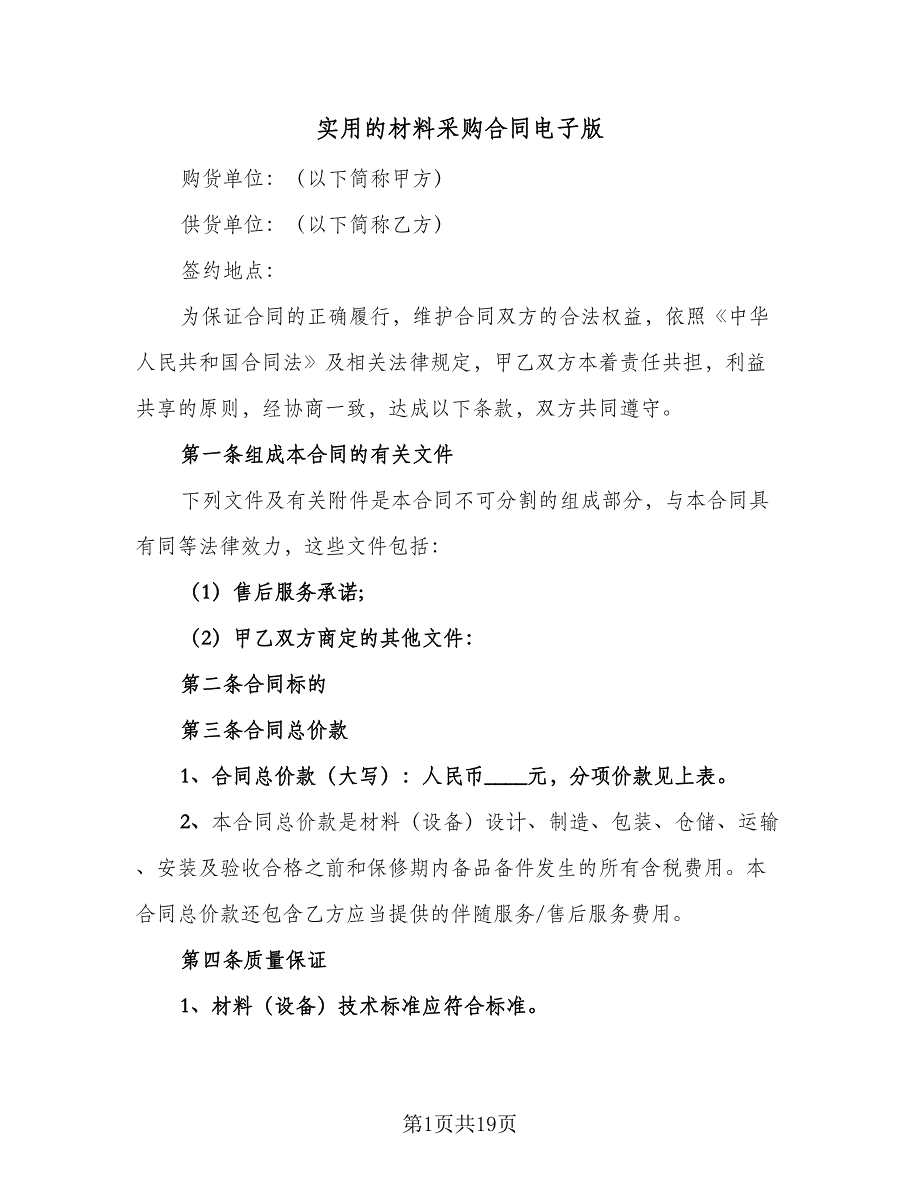 实用的材料采购合同电子版
购货单位：（以下简称甲方）
供货单位：（以下简称乙方）
签约地点：
为保证合同的正确履行，维护合同双方的合法权益，依照《中华
人民共和国合同法》及相关法律规定，甲乙双方本着责任共担，利益
共享的原则，经协商一致，达成以下条款，双方共同遵守。
第一条组成本合同的有关文件
下列文件及有关附件是本合同不可分割的组成部分，与本合同具
有同等法律效力，这些文件包括：
（1）售后服务承诺;
（2）甲乙双方商定的其他文件：
第二条合同标的
第三条合同总价款
1、合同总价款（大写）：人民币____元，分项价款见上表。
2、本合同总价款是材料（设备）设计、制造、包装、仓储、运输
、安装及验收合格之前和保修期内备品备件发生的所有含税费用。本
合同总价款还包含乙方应当提供的伴随服务/售后服务费用。
第四条质量保证
1、材料（设备）技术标准应符合标准。
第1页共19页